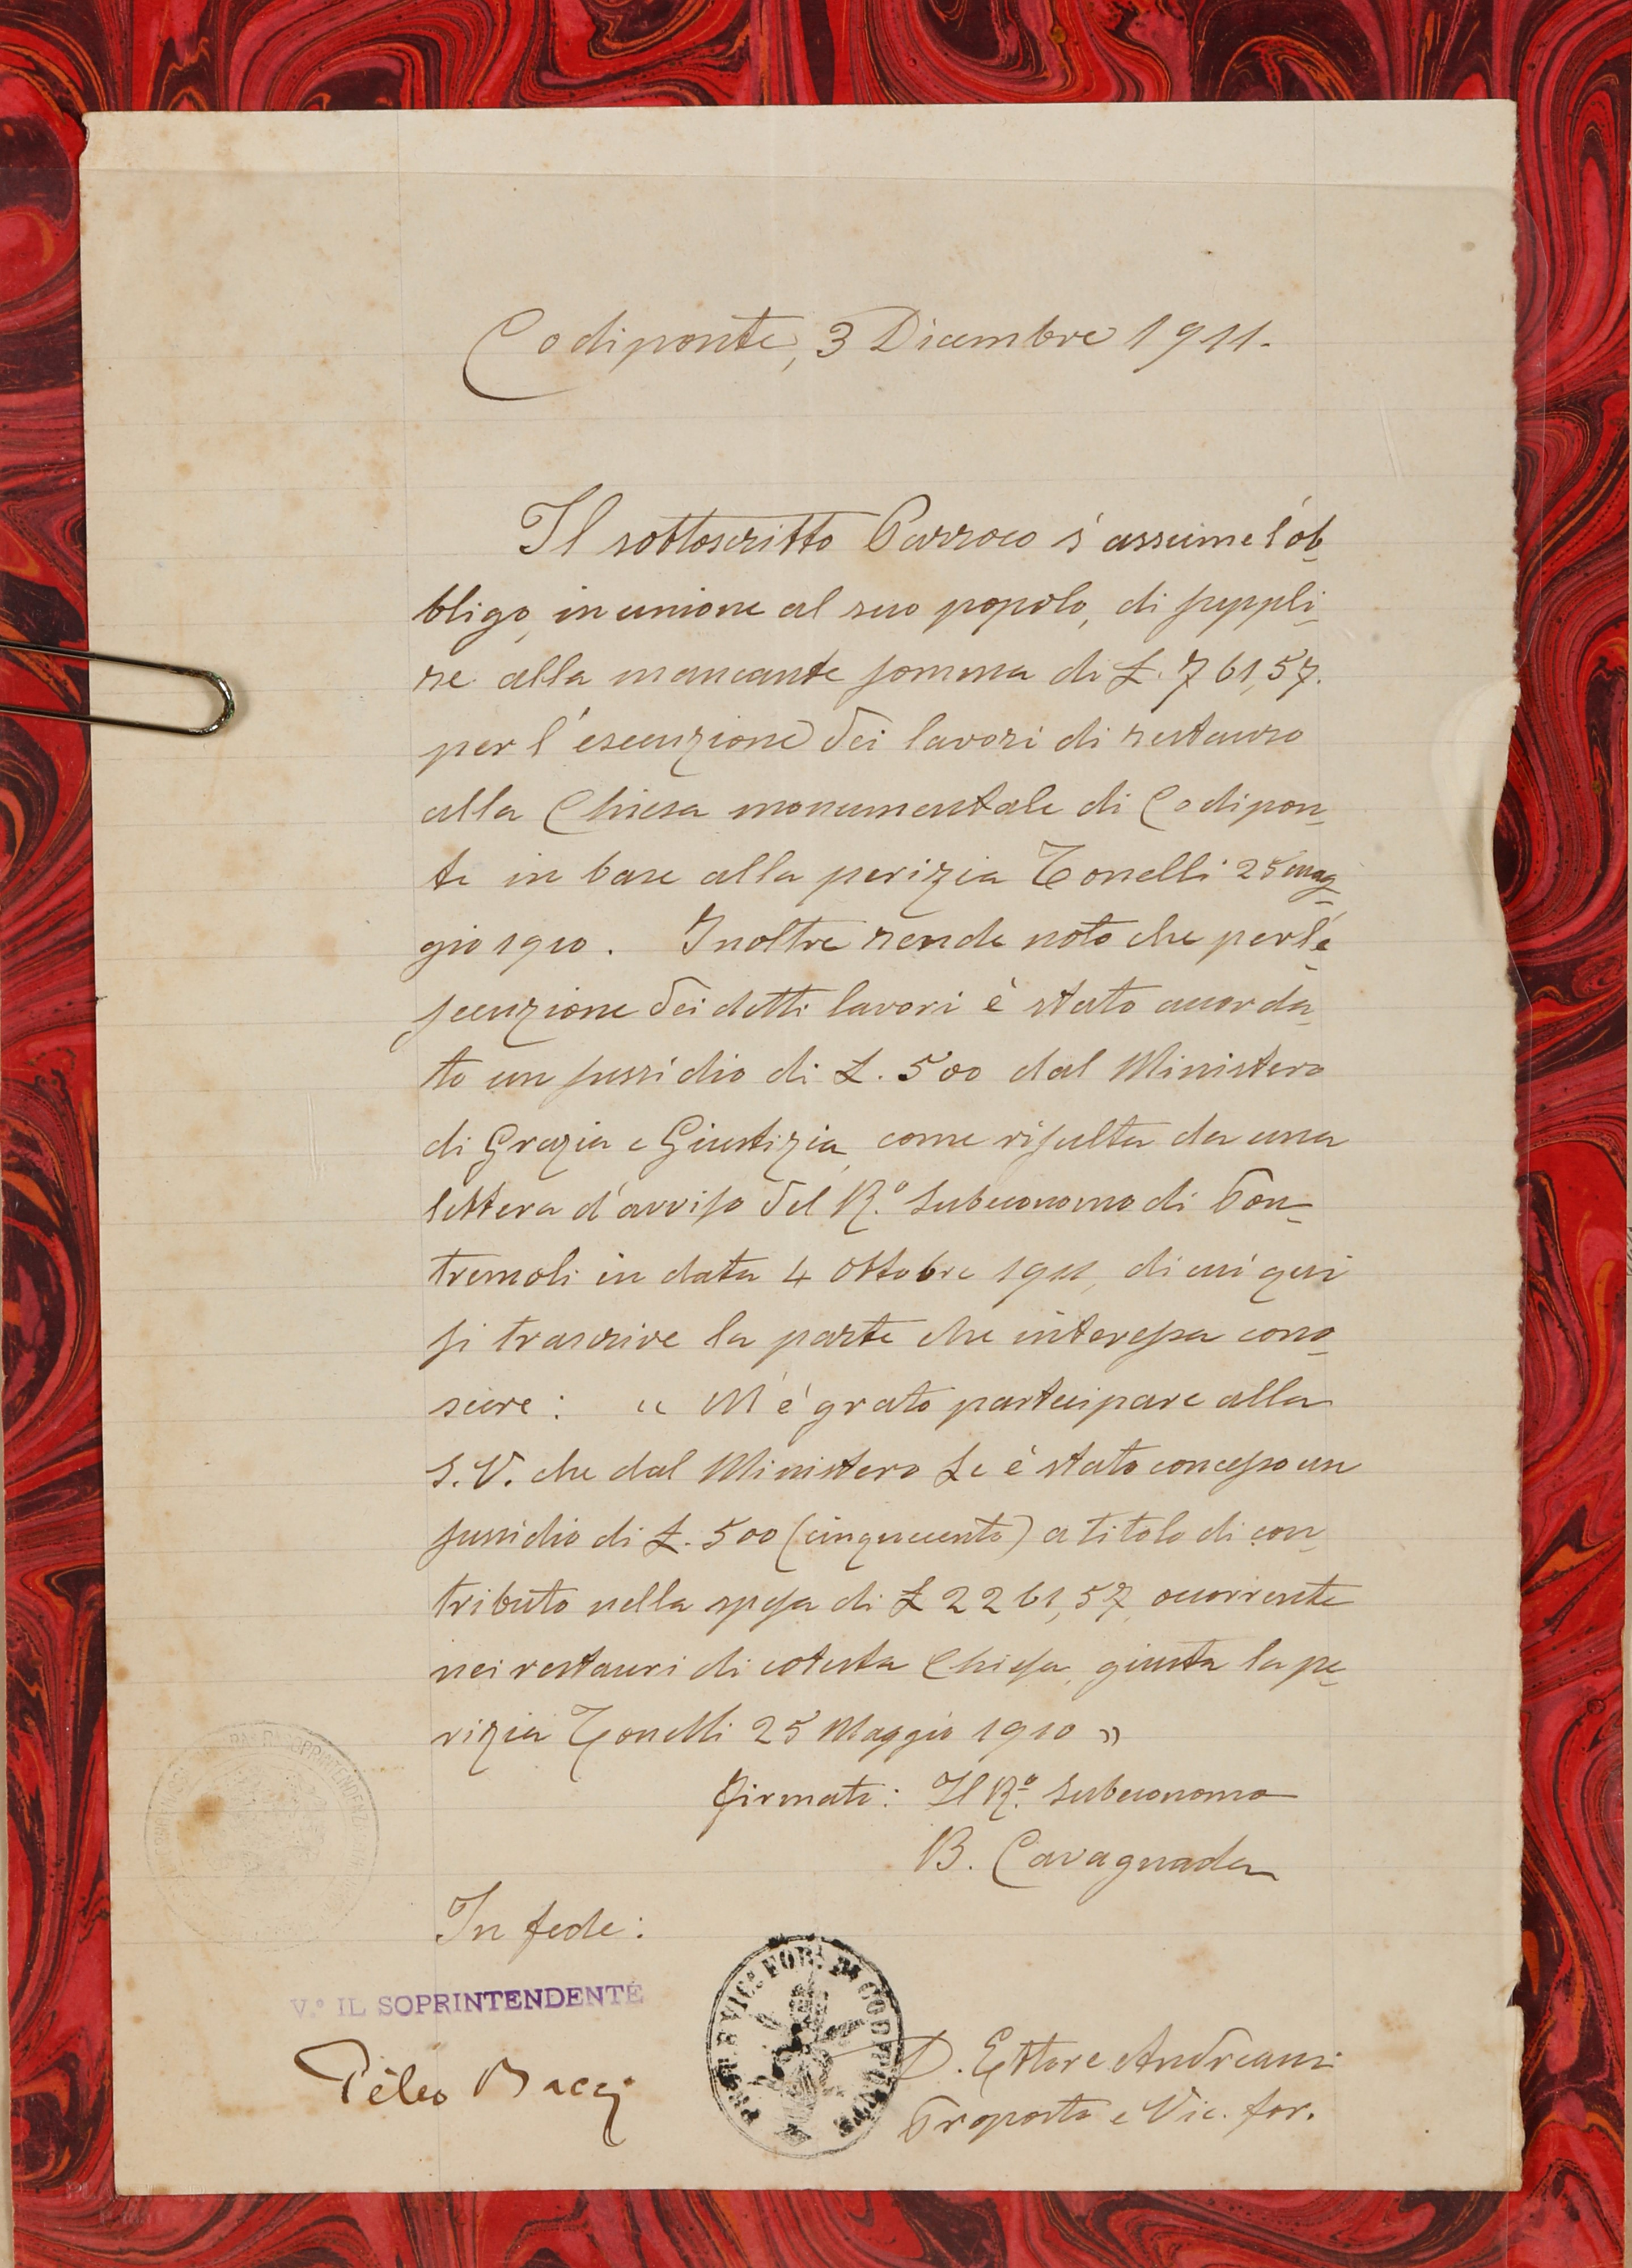 Codiponte, 3 Dicembre 1911.
Il sottoscritto Parroco s'assume l'ob-
bligo, in unione al suo popolo, di suppli-
re alla mancante somma di £. 761,57.
per l'esecuzione dei lavori di restauro
alla Chiesa monumentale di Codipon-
te in base alla perizia Tonelli 25 mag-
gio 1910. Inoltre rende noto che per l'e-
secuzione dei detti lavori è stato accorda-
to un sussidio di £. 500 dal Ministero
di Grazia e Giustizia, come risulta da una
lettera d'avviso del R.º Subeconomo di Pon-
tremoli in data 4 Ottobre 1911, di cui qui
si trascrive la parte che interessa cono-
scere: " M'è grato partecipare alla
S.V. che dal Ministero Le è stato concesso un
sussidio di £. 500 (cinquecento) a titolo di con-
tributo nella spesa di £ 2261,57, occorrente
nei restauri di cotesta Chiesa, giusta la pe-
rizia Tonelli 25 Maggio 1910 "
Firmato: Il R.º Subeconomo
B. Cavagnada
In fede:
V.º IL SOPRINTENDENTE
Pèleo Bacci
D. Ettore Andreani
Proposto e Vic. for.